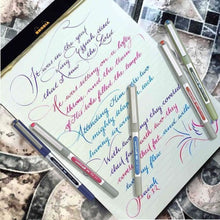 It was in the year
that King Uzziah died
I saw the Lord
He was sitting on a lofty
throne, and the train
of His robe filled the temple
Attending Him were
mighty seraphim, each
having six
wings
With two wings they covered
their faces, with two they
covered their feet, and with
two they flew
Isaiah
6:1-2